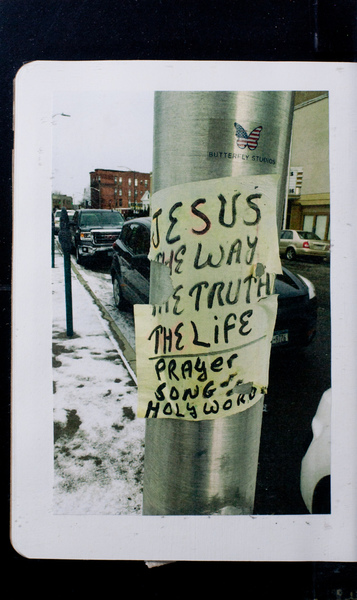 BUTTERFLY STUDIOS
JESUS
THE WAY
THE TRUTH
THE LiFE
PRAYer
SONG-
HOLY WORD